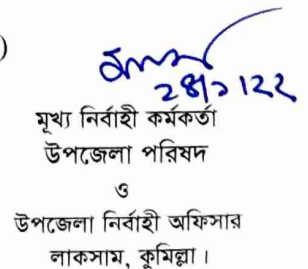 )
মূখ্য নির্বাহী কর্মকর্তা
উপজেলা পরিষদ
ও
উপজেলা নির্বাহী অফিসার
লাকসাম, কুমিল্লা ।